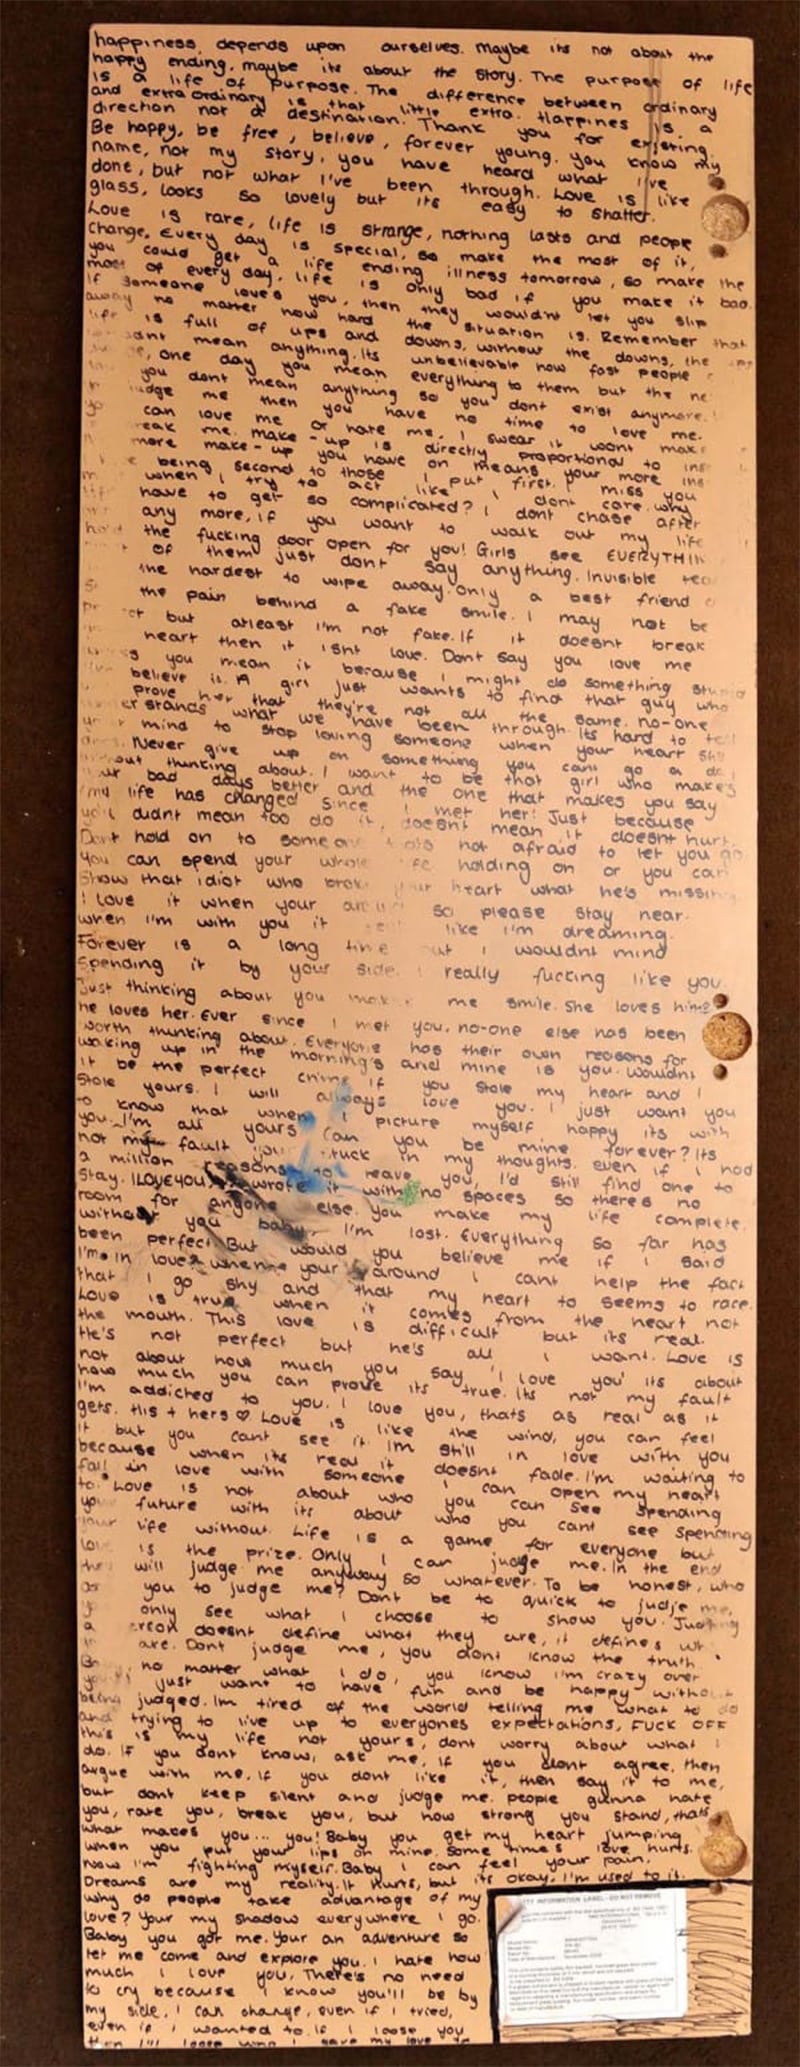 happiness depends upon ourselves. Maybe its not about the
happy ending. maybe its about the story. The purpose of life
is a life of purpose. The difference between ordinary
and extraordinary is that little extra. Happines is a
direction not a destination. Thank you for existing
Be happy, be free, believe, forever young. you know my
name, not my story, you have heard what I've
done, but not what I've been through. Love is like
glass, looks so lovely but its easy to shatter.
Love is rare, life is strange, nothing lasts and people
change. Every day is special, so make the most of it,
you could get a life ending illness tomorrow, so make the
most of every day. life is only bad if you make it bad.
If someone loves you, then they wouldnt let you slip
away no matter how hard the situation is. Remember that
life is full of ups and downs, without the downs, the ups
mean anything. Its unbelievable how fast people
one day you mean everything to them but the
you dont mean anything so you dont exist anymore.
judge me then you have no time to love me.
can love me or hate me, I swear it wont
me. make-up is directly proportional to
more make-up you have on means your more
being second to those I put first. I miss you
when I try to act like I dont care. why
have to get so complicated? I dont chase after
any more, if you want to walk out my life
the fucking door open for you! Girls see
of them just dont say anything. Invisible
the hardest to wipe away. Only a best friend
the pain behind a fake smile. I may not be
but atleast I'm not fake. If it doesnt break
heart then it isnt love. Dont say you love me
you mean it because I might do something
believe it. A girl just wants to find that guy who
prove her that they're not all the same. no-one
what we have been through. Its hard to
mind to stop loving someone when your heart
Never give up on something you cant go a
thinking about. I want to be that girl who makes
bad days better and the one that makes you say
my life has changed since I met her! Just because
you didnt mean too do it, doesnt mean it doesnt hurt.
Dont hold on to someone not afraid to let you go
You can spend your whole holding on or you can
show that idiot who heart what he's missing
I love it when your so please stay near.
when I'm with you it like I'm dreaming.
Forever is a long time but I wouldnt mind
Spending it by your side. I really fucking like you
Just thinking about you me smile. She loves him
he loves her. Ever since I met you, no-one else has been
worth thinking about. Everyone has their own reasons for
waking up in the morning's and mine is you. Wouldnt
it be the perfect crime if you stole my heart and I
stole yours. I will always love you. I just want you
to know that when I picture myself happy its with
you. I'm all yours can you be mine forever? Its
not my fault in my thoughts. even if I had
a million reasons to leave you, I'd still find one to
stay. ILOVEYOU, wrote it with no spaces so theres no
room for anyone else. You make my life complete.
without you baby, I'm lost. Everything so far has
been perfect. But would you believe me if I said
I'm in love? your around I cant help the fact
that I go shy and that my heart to seems to race.
Love is true when it comes from the heart not
the mouth. This love is difficult but its real.
He's not perfect but he's all I want. Love is
not about how much you say 'I love you' its about
how much you can prove its true. Its not my fault
I'm addicted to you. I love you, thats as real as it
gets. His + hers ♡ Love is like the wind, you can feel
it but you cant see it. I'm still in love with you
because when its real it doesnt fade. I'm waiting to
fall in love with someone I can open my heart
to. Love is not about who you can see spending
your future with its about who you cant see spending
your life without. Life is a game for everyone but
love is the prize. Only I can judge me. In the end
they will judge me anyway so whatever. To be honest, who
you to judge me? Dont be to quick to judje me,
only see what I choose to show you. Judging
a doesnt define what they are, it defines
are. Dont judge me, you dont know the truth
no matter what I do, you know I'm crazy over
just want to have fun and be happy without
being judged. Im tired of the world telling me what to do
and trying to live up to everyones expectations, FUCK OFF
this is my life not yours, dont worry about what I
do. If you dont know, ask me, if you dont agree, then
argue with me. If you dont like it, then say it to me,
but dont keep silent and judge me. people gunna hate
you, rate you, break you, but how strong you stand, thats
what makes you... you! Baby you get my heart jumping
when you put your lips on mine. Some time's love hurts.
Now I'm fighting myself. Baby I can feel your pain.
Dreams are my reality. It hurts, but its okay, I'm used to it.
Why do people take advantage of my
love? Your my shadow everywhere I go.
Baby you got me. Your an adventure so
let me come and explore you. I hate how
much I love you, There's no need
to cry because I know you'll be by
my side. I can change, even if I tried,
even if I wanted to. If I loose you
then I'll loose who I gave my love to
INFORMATION LABEL - DO NOT REMOVE